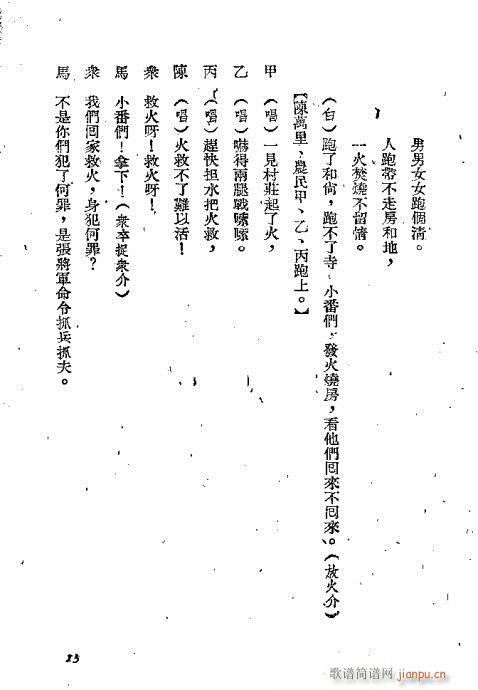 男男女女跑個淸。
人跑帶不走房和地，
一火焚燒不留情。
（白）跑了和尙，跑不了寺，小番們，發火燒房，看他們囘來不囘來。（放火介）
【陳萬里、農民甲、乙、丙跑上。】
甲　（唱）一見村莊起了火，
乙　（唱）嚇得兩腿戰嗦嗦。
丙　（唱）趕快担水把火救，
陳　（唱）火救不了難以活！
衆　救火呀！救火呀！
馬　小番們！拿下！（衆卒捉衆介）
衆　我們囘家救火，身犯何罪？
馬　不是你們犯了何罪，是張將軍命令抓兵抓夫。
23
歌谱简谱网
jianpu.cn